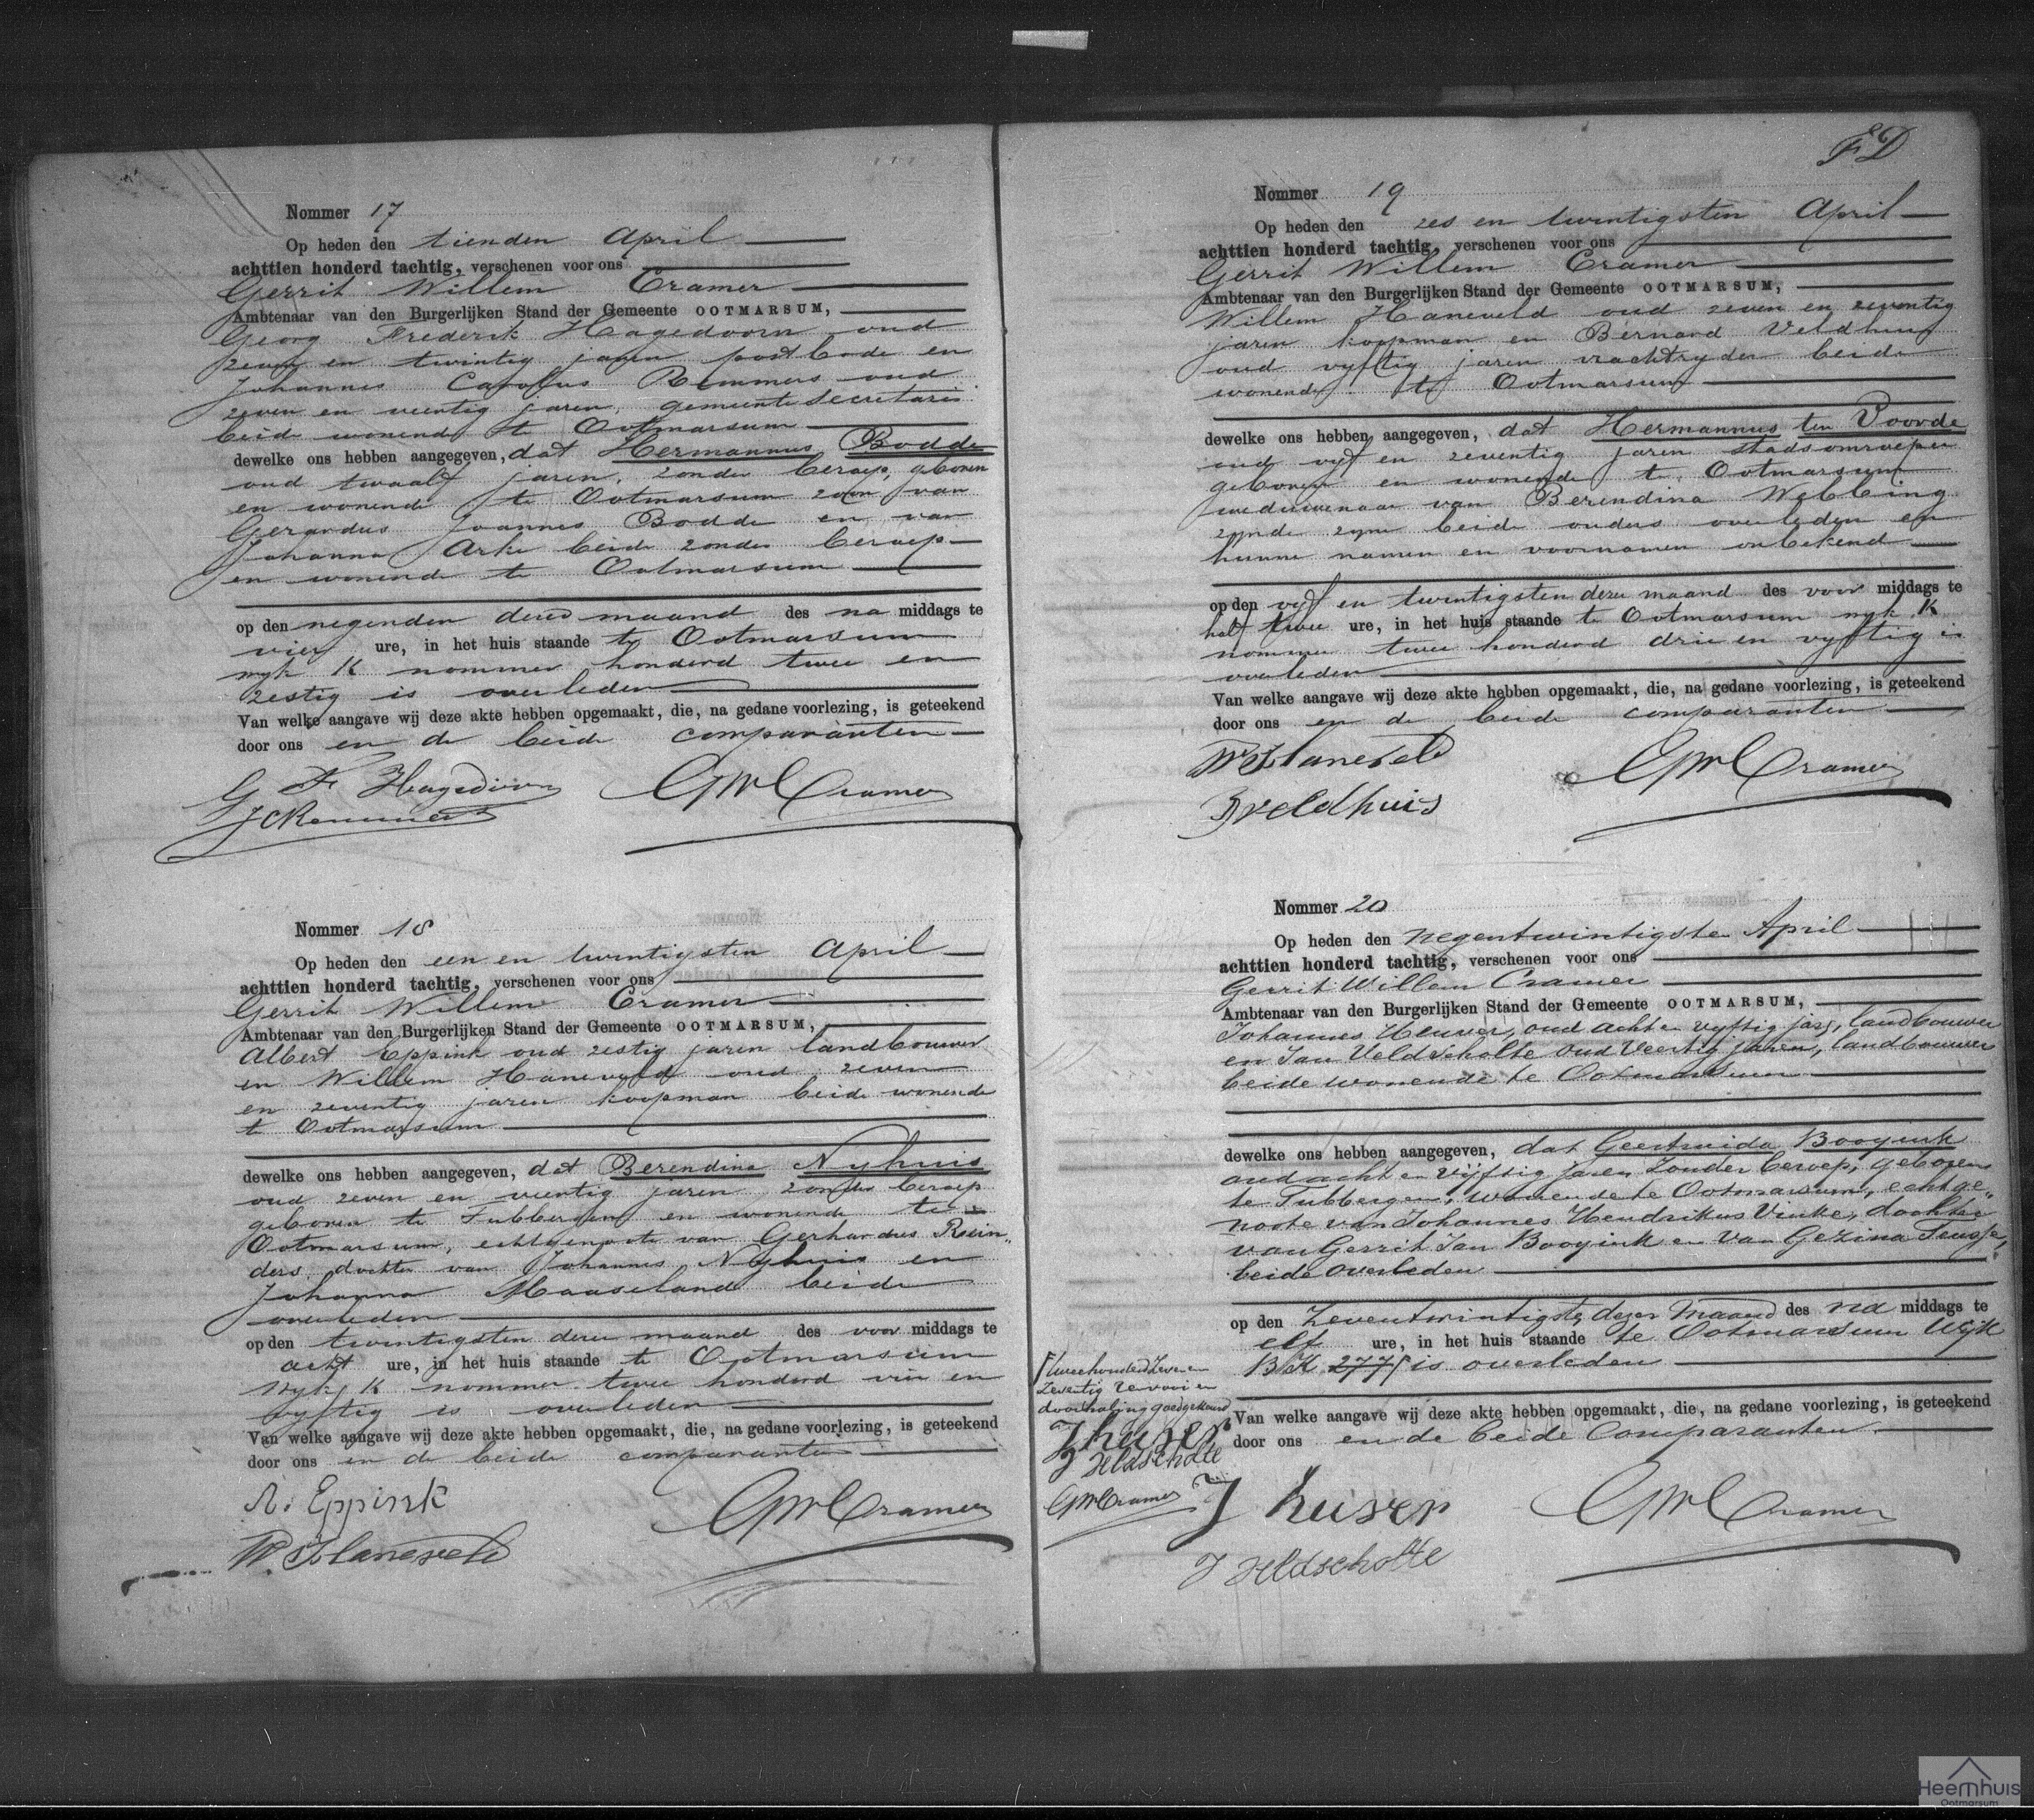 Nommer 17
Op heden den tienden April
achttien honderd tachtig, verschenen voor ons
Gerrit Willem Cramer
Ambtenaar van den Burgerlijken Stand der Gemeente OOTMARSUM,
Georg Frederik Hagedoorn oud
zeven en twintig jaren postbode en
Johannes Carolus Remmers oud
zeven en veertig jaren, gemeente secretaris
beide wonende te Ootmarsum
dewelke ons hebben aangegeven, dat Hermannus Bodde
oud twaalf jaren, zonder beroep, geboren
en wonende te Ootmarsum zoon van
Gerardus Joannes Bodde en van
Johanna Arke beide zonder beroep
en wonende te Ootmarsum
op den negenden dezer maand des na middags te
vier ure, in het huis staande te Ootmarsum
wyk K nommer honderd twee en
zestig is overleden
Van welke aangave wij deze akte hebben opgemaakt, die, na gedane voorlezing, is geteekend
door ons en de beide comparanten
G F Hagedoorn GWCramer
JCRemmers
Nommer 18
Op heden den een en twintigsten April
achttien honderd tachtig, verschenen voor ons
Gerrit Willem Cramer
Ambtenaar van den Burgerlijken Stand der Gemeente OOTMARSUM,
Albert Eppink oud zestig jaren landbouwer
en Willem Haneveld oud zeven
en zeventig jaren koopman beide wonende
te Ootmarsum
dewelke ons hebben aangegeven, dat Berendina Nyhuis
oud zeven en veertig jaren, zonder beroep
geboren te Tubbergen en wonende te
Ootmarsum, echtgenoote van Gerhardus Rein„
ders, dochter van Johannes Nyhuis en
Johanna Maaseland beide
overleden
op den twintigsten dezer maand des voor middags te
acht ure, in het huis staande te Ootmarsum
wyk K nommer twee honderd vier en
vyftig is overleden
Van welke aangave wij deze akte hebben opgemaakt, die, na gedane voorlezing, is geteekend
door ons en de beide comparanten
A. Eppink GWCramer
W. Haneveld
FD
Nommer 19
Op heden den zes en twintigsten April
achttien honderd tachtig, verschenen voor ons
Gerrit Willem Cramer
Ambtenaar van den Burgerlijken Stand der Gemeente OOTMARSUM,
Willem Haneveld oud zeven en zeventig
jaren koopman en Bernard Veldhuis
oud vyftig jaren vrachtryder beide
wonende te Ootmarsum
dewelke ons hebben aangegeven, dat Hermannus ten Voorde
oud vyf en zeventig jaren stadsomroeper
geboren en wonende te Ootmarsum
weduwenaar van Berendina Webbing
zynde zyne beide ouders overleden en
hunne namen en voornamen onbekend
op den vyf en twintigsten dezer maand des voor middags te
half twee ure, in het huis staande te Ootmarsum wyk K
nommer twee honderd drie en vyftig is
overleden
Van welke aangave wij deze akte hebben opgemaakt, die, na gedane voorlezing, is geteekend
door ons en de beide comparanten
W Haneveld GWCramer
B Veldhuis
Nommer 20
Op heden den negentwintigste April
achttien honderd tachtig, verschenen voor ons
Gerrit Willem Cramer
Ambtenaar van den Burgerlijken Stand der Gemeente OOTMARSUM,
Johannes Heuver, oud acht en vyftig jaar, landbouwer
en Jan Veldscholte oud Veertig jaren, landbouwer
beide wonende te Ootmarsum
dewelke ons hebben aangegeven, dat Geertruida Booyink
oud acht en vijftig jaren, zonder beroep, geboren
te Tubbergen, wonende te Ootmarsum, echtge„
noote van Johannes Hendrikus Vinke, dochter
van Gerrit Jan Booyink en van Gezina
beide overleden
op den Zeventwintigste dezer maand des na middags te
elf ure, in het huis staande te Ootmarsum Wijk
K 277 is overleden
Van welke aangave wij deze akte hebben opgemaakt, die, na gedane voorlezing, is geteekend
door ons en de beide Comparanten
tweehonderd zeven en
zeventig
doorhaling goedgekeurd
J heuver
J Veldscholte
GWCramer
J heuver GWCramer
J Veldscholte
Heemhuis
Ootmarsum